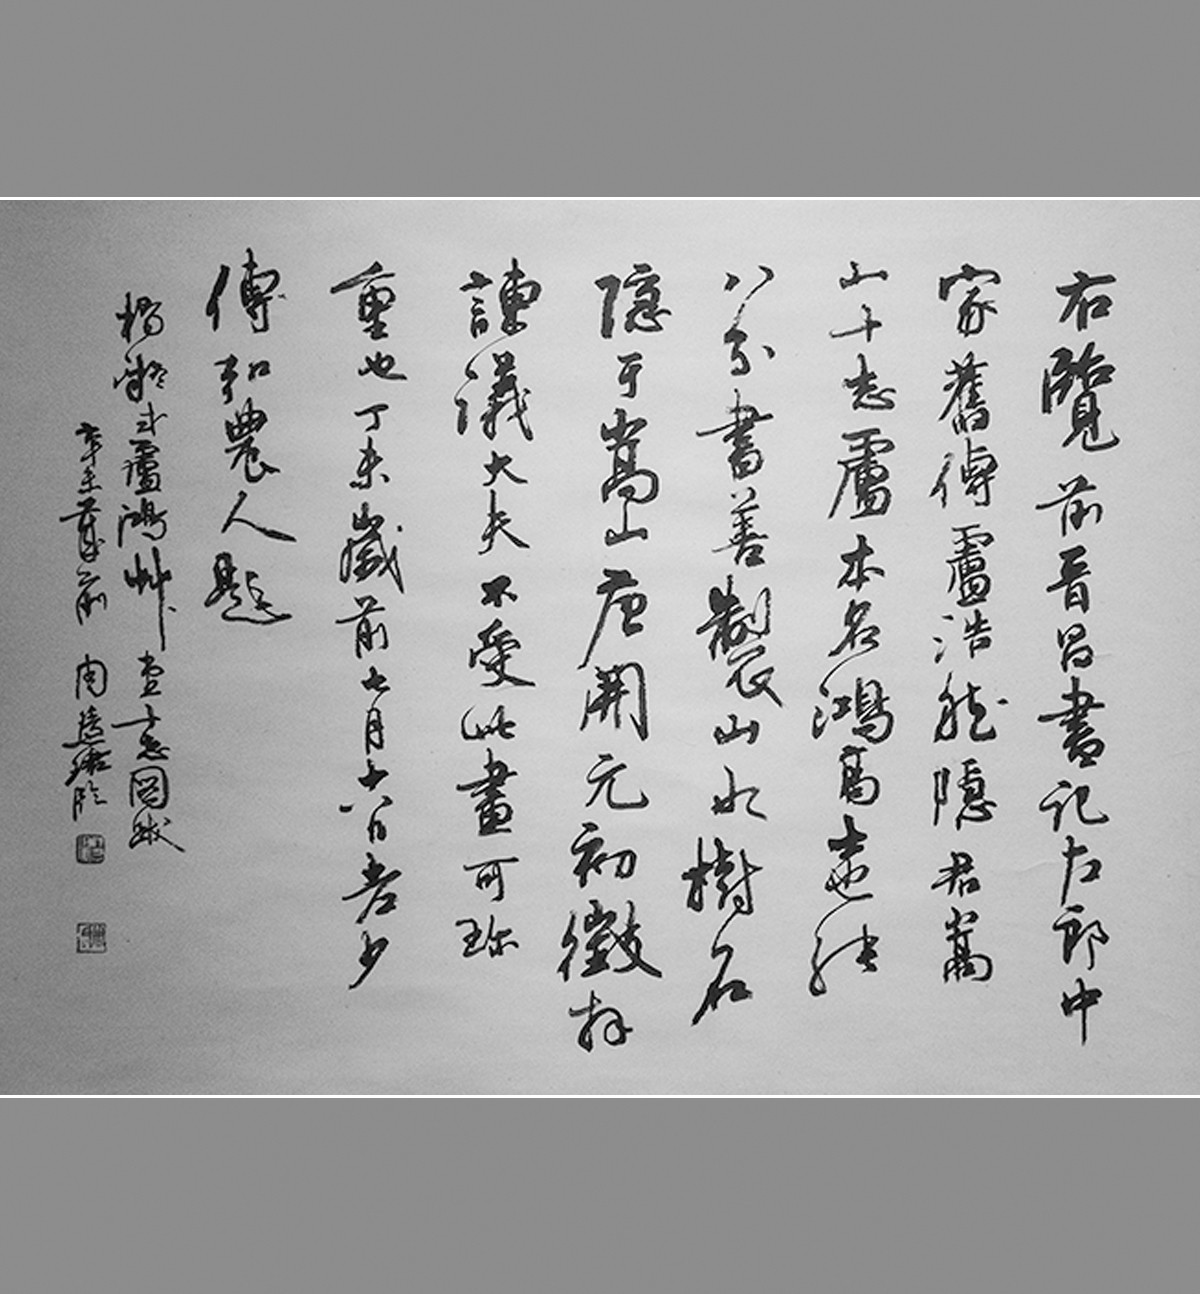 右覽前晉昌書記左郎中
家舊傳盧浩然隱君嵩
山十志盧本名鴻高士也能
八分書善製山水樹石
隱于嵩山唐開元初徵拜
諫議大夫不受此畫可珍
重也丁未歲前七月十八日老少
傅弘農人題
楊凝式盧鴻艸堂十志圖跋
辛歲前 周慧珺臨